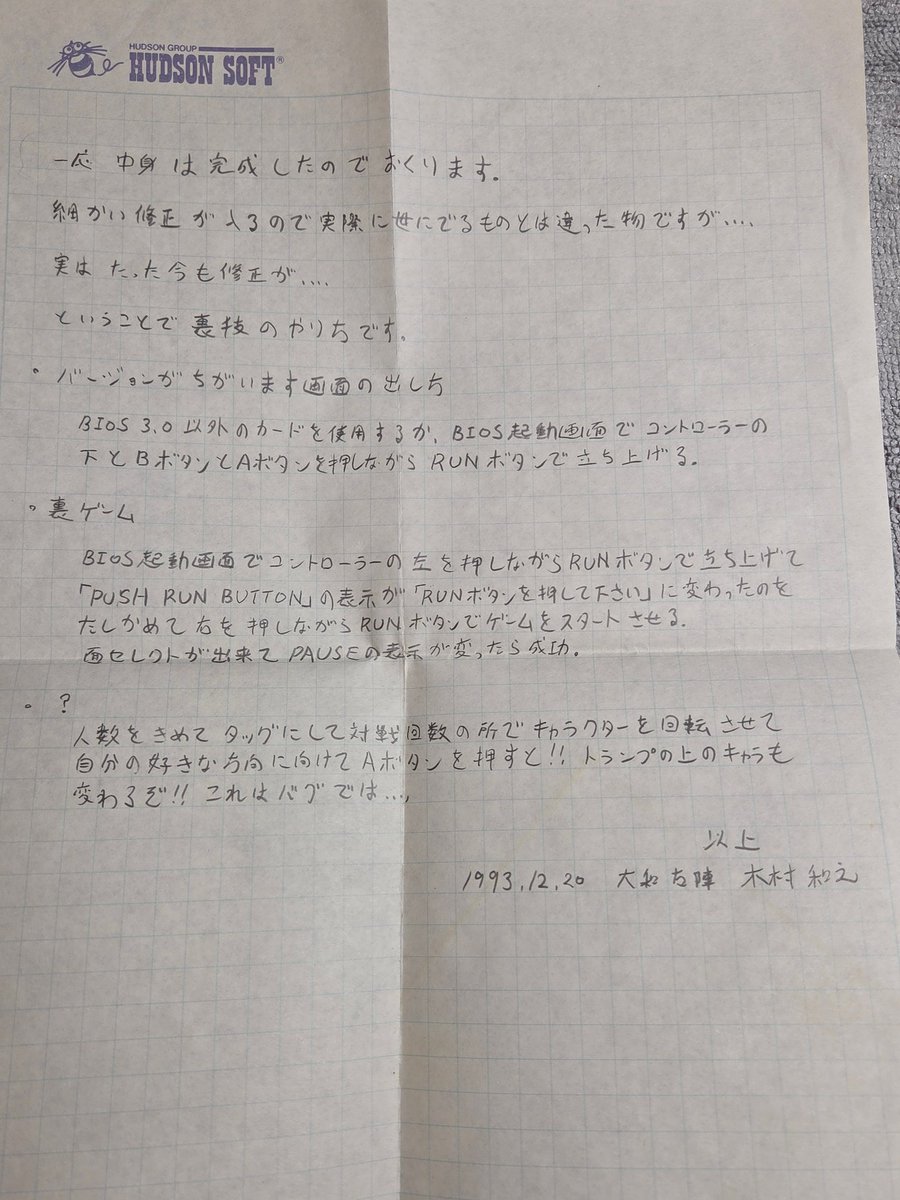 HUDSON GROUP
HUDSON SOFT®
一応 中身は完成したので おくります。
細かい修正が入るので実際に世にでるものとは違った物ですが‥‥
実は たった今も修正が‥‥
ということで 裏技のやり方です。
・ バージョンがちがいます画面の出し方
BIOS 3.0 以外のカードを使用するか、BIOS起動画面で コントローラーの
下とBボタンとAボタンを押しながら RUNボタンで立ち上げる。
・ 裏ゲーム
BIOS起動画面でコントローラーの 左を押しながらRUNボタンで立ち上げて
「PUSH RUN BUTTON」の表示が「RUNボタンを押して下さい」に変わったのを
たしかめて 右を押しながらRUNボタンでゲームをスタートさせる。
面セレクトが出来て PAUSEの表示が変ったら成功。
・ ?
人数をきめて タッグにして対戦回数の所でキャラクターを回転させて
自分の好きな方向に向けてAボタンを押すと!! トランプの上のキャラも
変わるぞ!! これはバグでは‥‥
以上
1993.12.20 大和 木村 和之